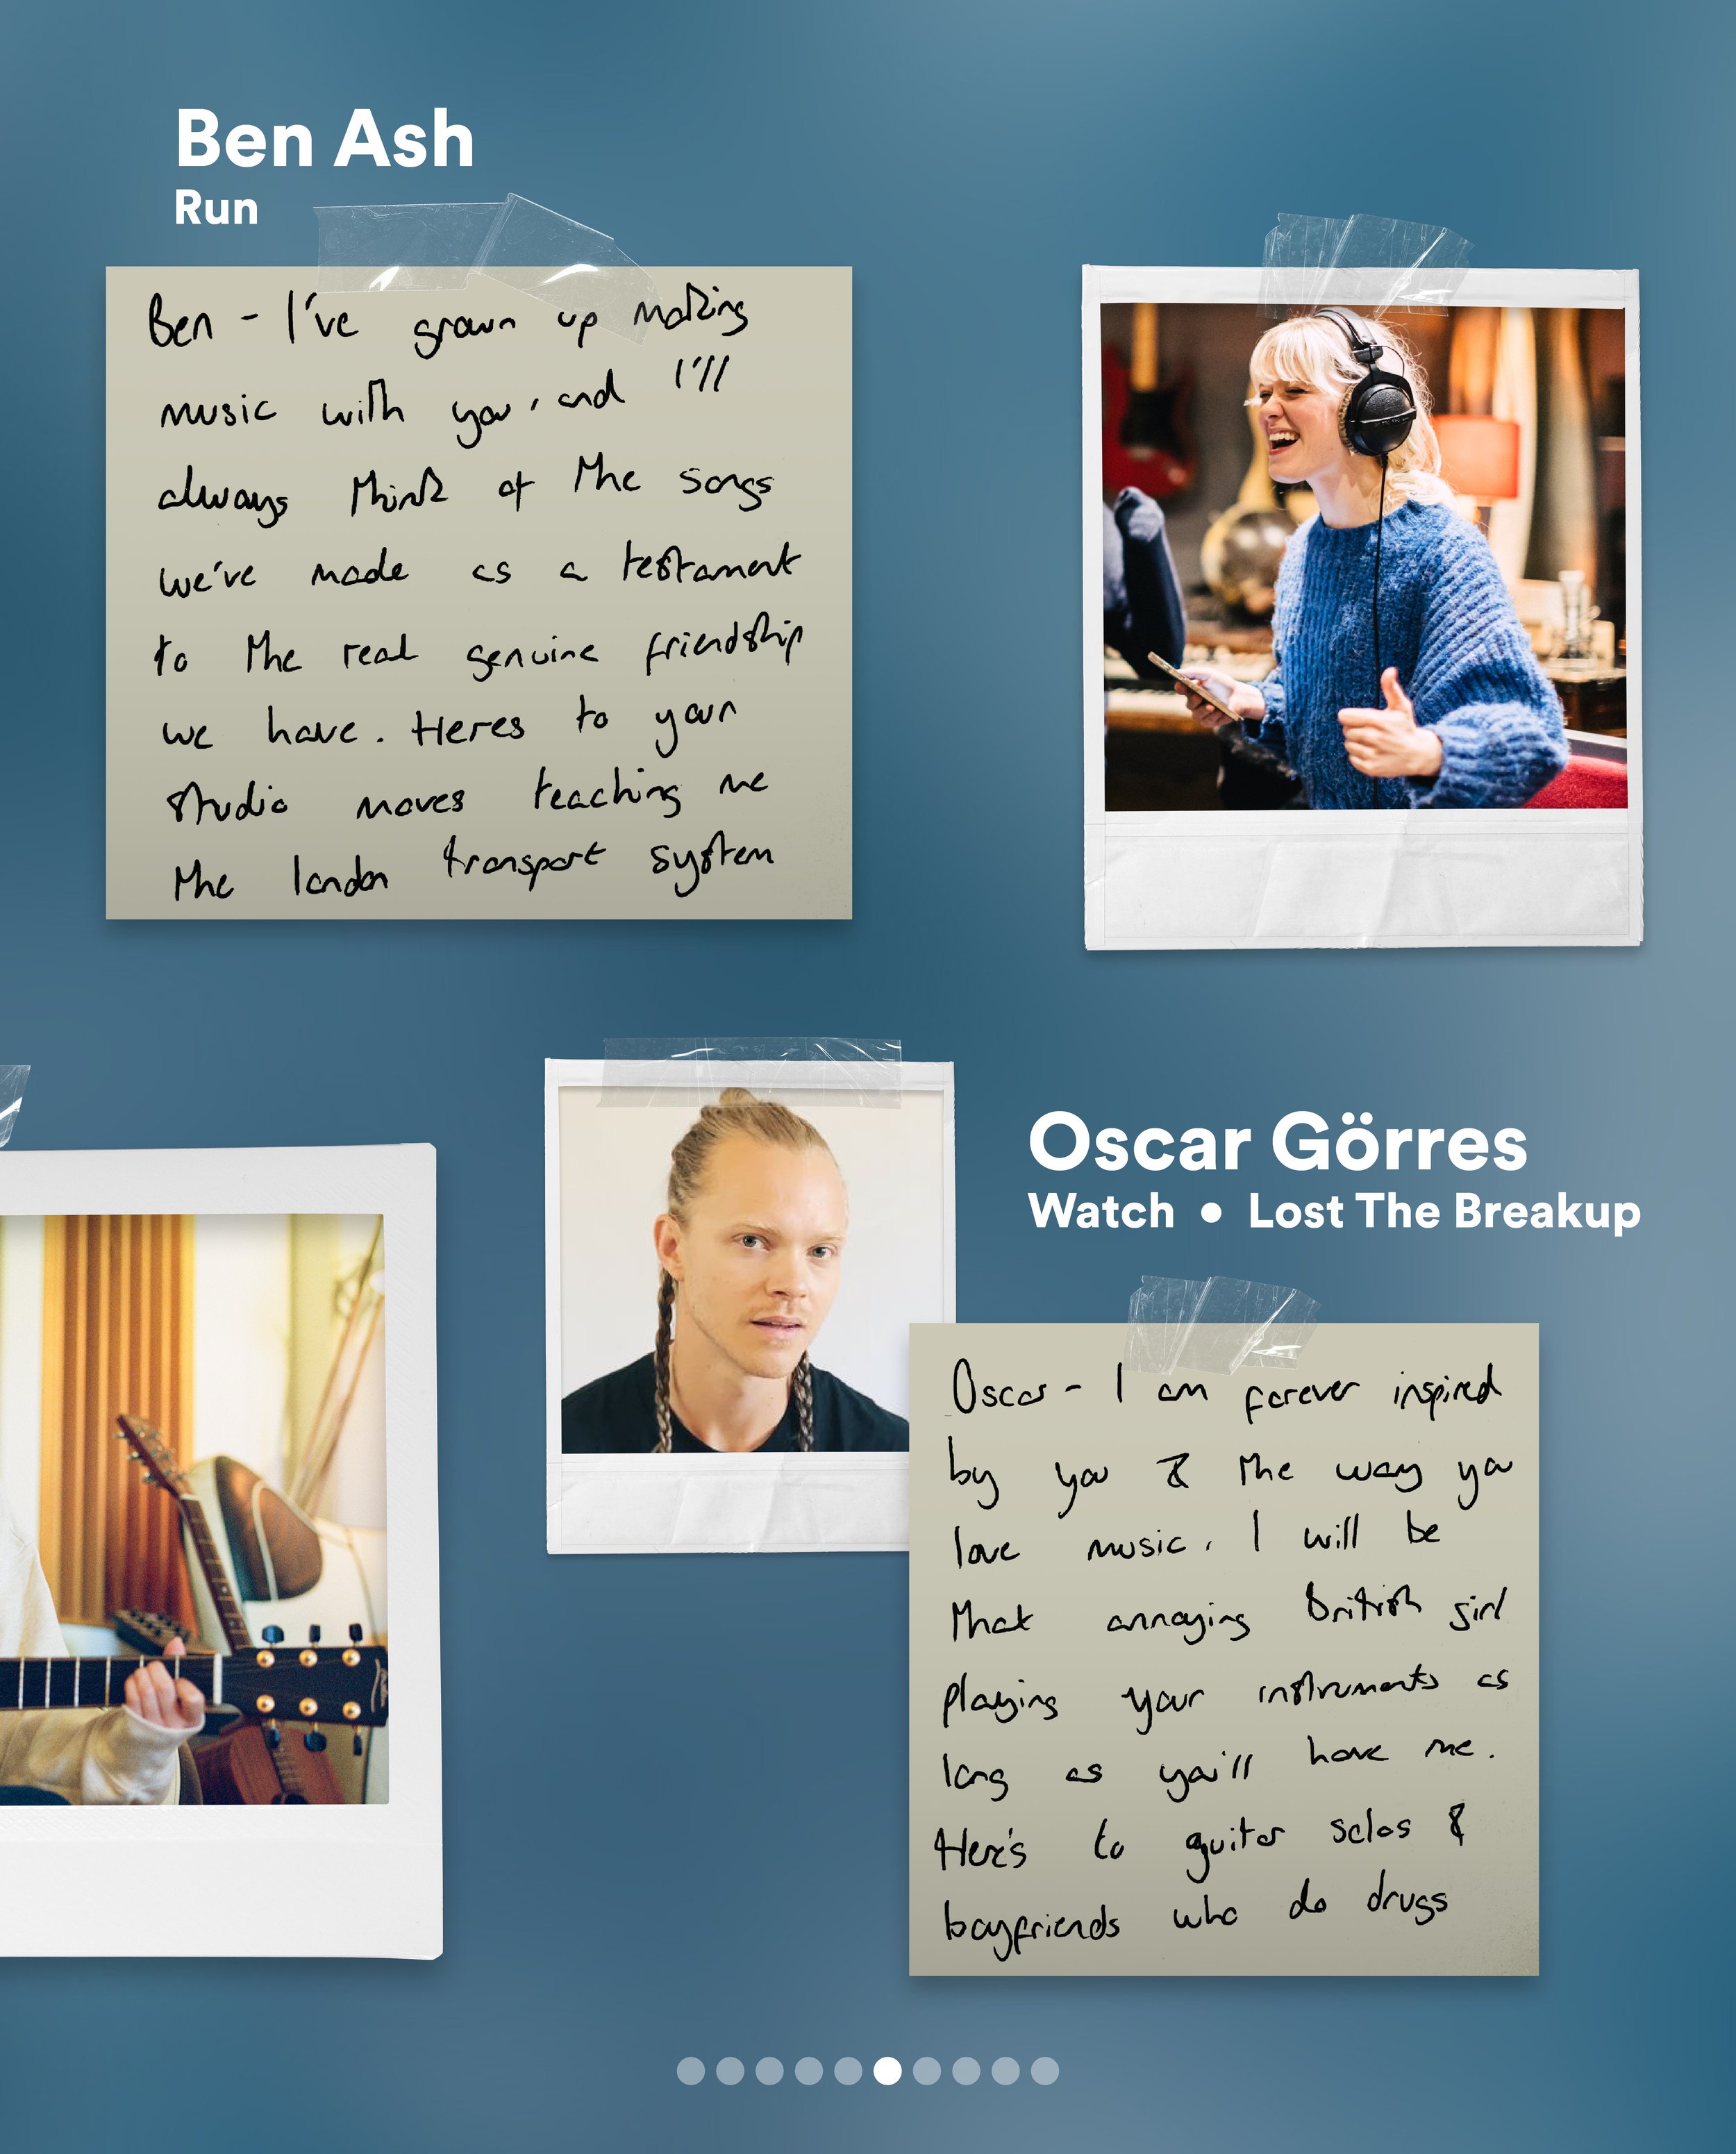 Ben Ash
Run
Ben - I've grown up making
music with you, and I'll
always think of the songs
we've made as a testament
to the real genuine friendship
we have. Heres to your
studio moves teaching me
the london transport system
Oscar Görres
Watch • Lost The Breakup
Oscar - I am forever inspired
by you & the way you
love music. I will be
that annoying British girl
playing your instruments as
long as you'll have me.
Here's to guitar solos &
boyfriends who do drugs